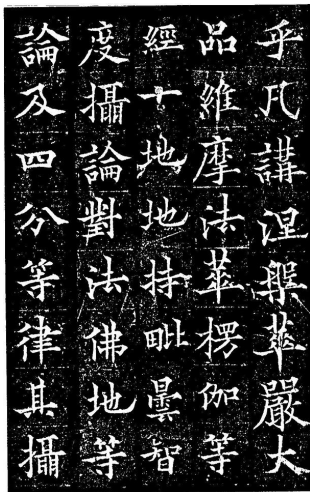 乎凡講涅槃華嚴大
品維摩法華楞伽等
經十地地持毗曇智
度攝論對法佛地等
論及四分等律其攝